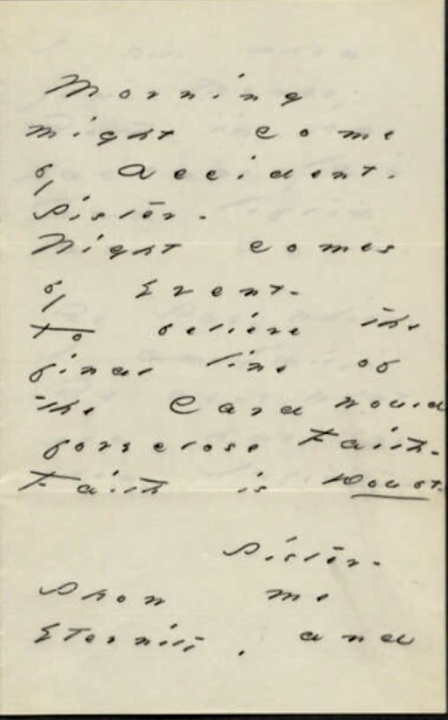 Morning
might come
by Accident -
Sister -
Night comes
by Event -
To believe the
final line of
the Card would
foreclose Faith -
Faith is Doubt -
Sister -
Show me
Eternity, and